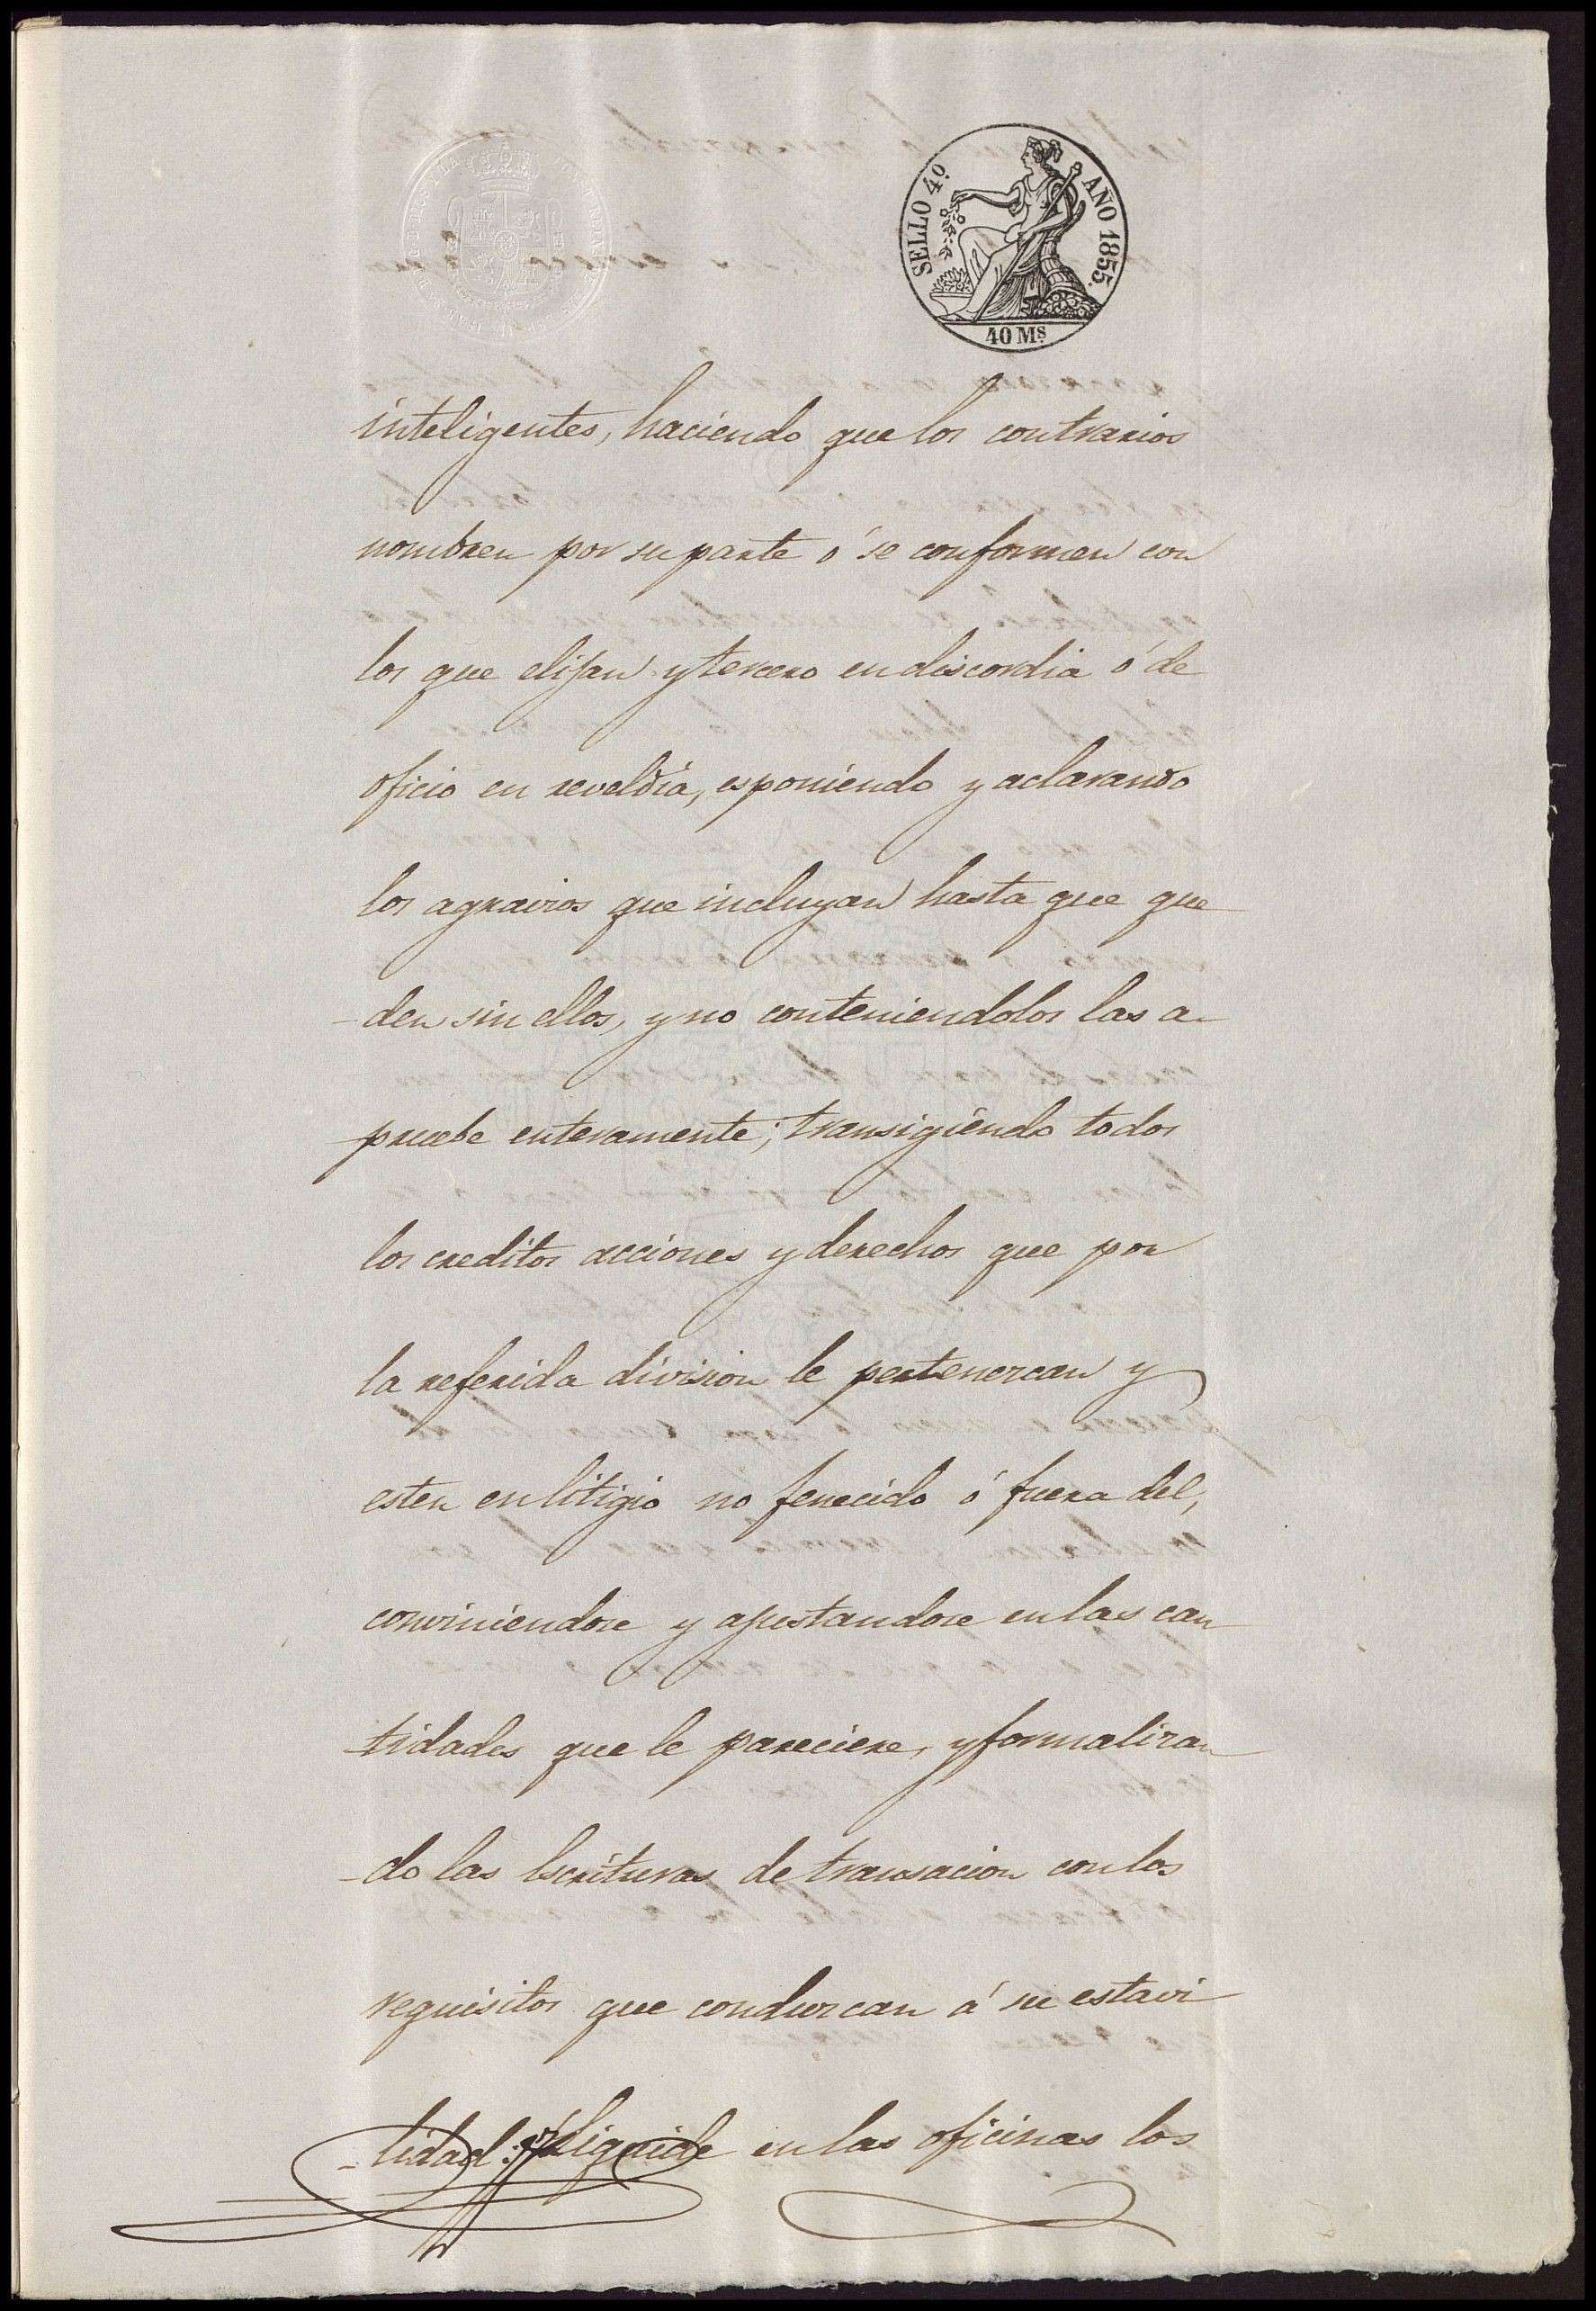 SELLO 4º. AÑO 1855.
40 Ms
inteligentes, haciendo que los contrarios
nombren por su parte ó se conformen con
los que elijan y tercero en discordia ó de
oficio en reveldia, esponiendo y aclarando
los agravios que incluyan hasta que que
-den sin ellos, y no conteniendolos las a-
pruebe enteramente; transigiendo todos
los creditos acciones y derechos que por
la referida division le pertenezcan y
esten en litigio no fenecido ó fuera del,
conviniendose y ajustandose en las can
tidades que le pareciere, y formalizan
-do las Escrituras de transacion con los
requisitos que conduzcan á su estavi
-lidad: liquide en las oficinas los